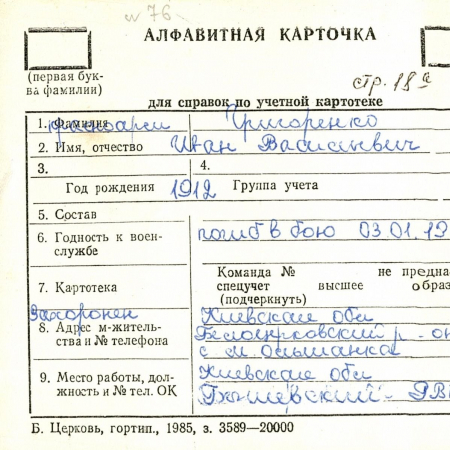 № 76
АЛФАВИТНАЯ КАРТОЧКА
(первая бук-
ва фамилии)
стр. 18
для справок по учетной картотеке
1. Фамилия Григоренко
2. Имя, отчество Иван Васильевич
3. 4.
Год рождения 1912 Группа учета
5. Состав
6. Годность к воен-
службе
погиб в бою 03.01.19
Команда № не предна
7. Картотека спецучет высшее образ
(подчеркнуть)
Захоронен Киевская обл
8. Адрес м-житель-
ства и № телефона
Белоцерковский р-он
с
9. Место работы, дол-
жность и № тел. ОК
Киевская обл
РВ
Б. Церковь, гортип., 1985, з. 3589—20000